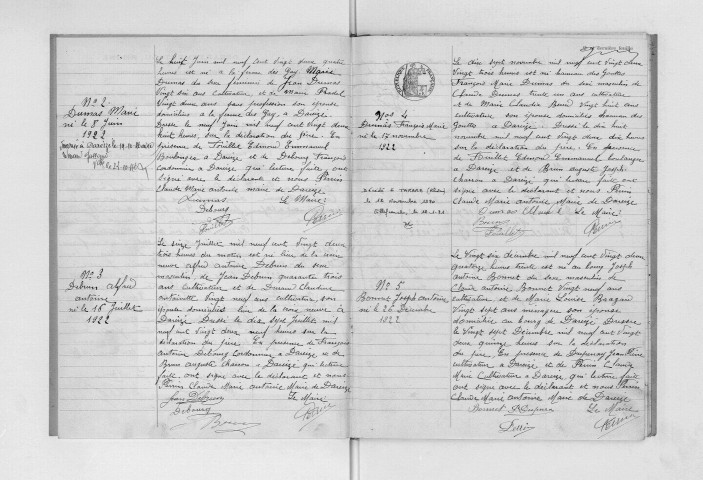 No 2
Dumas Marie
né le 8 Juin
1922
Le huit Juin mil neuf cent vingt deux quatre
heures est né à la ferme des Guy Marie
Dumas du sexe féminin de Jean Dumas
Vingt six ans cultivateur et de Marie Radel
Vingt deux ans sans profession son épouse
domiciliés à la ferme des Guy, à Dareizé.
Dressé le neuf Juin mil neuf cent vingt deux
huit heures, sur la déclaration du père. En
présence de Edmond Emmanuel
Boulanger à Dareizé et de Debourg François
Cordonnier à Dareizé qui lecture faite ont
signé avec le déclarant et nous Perrin
Claude Marie Antoine maire de Dareizé
Dumas Le Maire
Debourg
Perrin
No 3
Debrun Alfred
Antoine
né le 16 Juillet
1922
Le seize Juillet mil neuf cent vingt deux
trois heures du matin est né lieu de la noix
neuve Alfred Antoine Debrun du sexe
masculin de Jean Debrun quarante trois
ans cultivateur et de Claudine
Antoinette Vingt neuf ans cultivateur, son
épouse domiciliés lieu de la noix neuve à
Dareizé Dressé le dix sept Juillet mil
neuf cent vingt deux neuf heures sur la
déclaration du père. En présence de François
Antoine Debourg Cordonnier à Dareizé et de
Brun Auguste à Dareizé qui lecture
faite, ont signé avec le déclarant et nous
Perrin Claude Marie Antoine Maire de Dareizé
Jean Debrun Le Maire
Debourg
Brun Perrin
Nos 4
Dumas François Marie
né le 17 novembre
1922
Le dix sept novembre mil neuf cent vingt deux
Vingt trois heures est né hameau des Gouttes
François Marie Dumas du sexe masculin de
Claude Dumas trente six ans cultivateur
et de Marie Claudia Vingt huit ans
cultivateur son épouse domiciliés hameau des
Gouttes à Dareizé. Dressé le dix huit
novembre mil neuf cent vingt deux dix heures
sur la déclaration du père. En présence
de Edmond Emmanuel boulanger
à Dareizé et de Brun Auguste Joseph
à Dareizé qui lecture faite ont
signé avec le déclarant et nous Perrin
Claude Marie Antoine Maire de Dareizé
Dumas Claude Le Maire
Perrin
No 5
Bonnet Joseph Antoine
né le 26 Décembre
1922
Le Vingt six décembre mil neuf cent vingt deux
quatorze heures trente est né au bourg Joseph
Antoine Bonnet du sexe masculin de
Claude Antoine Bonnet Vingt ans
cultivateur et de Marie Louise
Vingt sept ans ménagère son épouse
domiciliés au bourg de Dareizé. Dressé
le Vingt sept Décembre mil neuf cent vingt
deux quinze heures sur la déclaration
du père. En présence de Jean Pierre
cultivateur à Dareizé et de Perrin Claude
Marie Cultivateur à Dareizé, qui lecture faite
ont signé avec le déclarant et nous Perrin
Claude Marie Antoine Maire de Dareizé
Bonnet Le Maire
Perrin Perrin